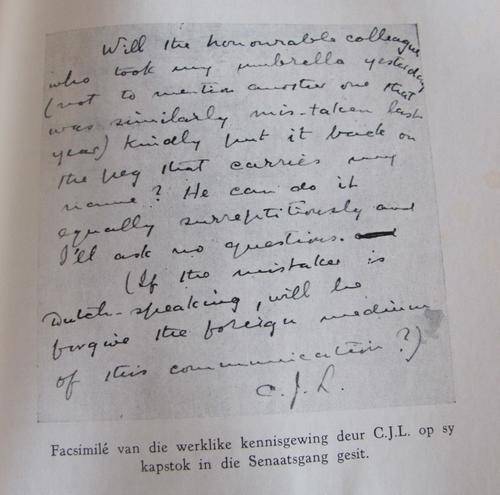 Will the honourable colleague
who took my umbrella yesterday
(not to mention another one that
was similarly mis-taken last
year) kindly put it back on
the peg that carries my
name? He can do it
equally surreptitiously and
I'll ask no questions.
(If the mistaker is
Dutch-speaking, will he
forgive the foreign medium
of this communication?)
C.J.L.
Facsimilé van die werklike kennisgewing deur C.J.L. op sy
kapstok in die Senaatsgang gesit.